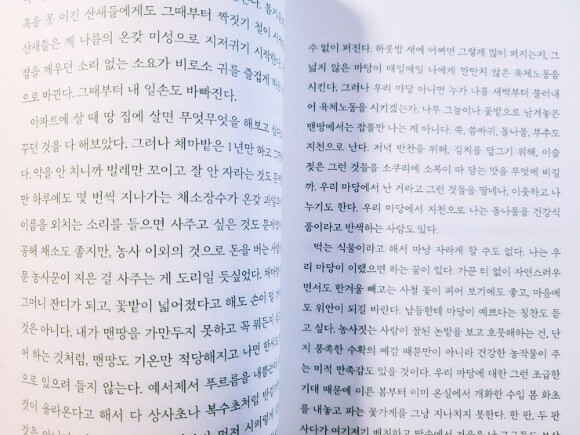 혹을 못 이긴 산새들에게도 그때부터 짝짓기 철이 시
산새들은 제 나름의 온갖 미성으로 지저귀기 시작한
잠을 깨우던 소리 없는 소요가 비로소 귀를 즐겁게
으로 바뀐다. 그때부터 내 일손도 바빠진다.
아파트에 살 때 땅 집에 살면 무엇무엇을 해보고
꾸던 것을 다 해보았다. 그러나 채마밭은 1년만 하고
다. 약을 안 치니까 벌레만 꼬이고 잘 안 자라는 것도 문제
만 하루에도 몇 번씩 지나가는 채소장수가 온갖
이름을 외치는 소리를 들으면 사주고 싶은 것도 문제
공해 채소도 좋지만, 농사 이외의 것으로 돈을 버는 사람
문 농사꾼이 지은 걸 사주는 게 도리일 듯싶었다.
그머니 잔디가 되고, 꽃밭이 넓어졌다고 해도 손이
것은 아니다. 내가 맨땅을 가만두지 못하고 꼭 뭐든지
어 하는 것처럼, 맨땅도 기온만 적당해지고 나면 한시
으로 있으려 들지 않는다. 예서제서 푸르름을 내뿜는
것이 올라온다고 해서 다 상사초나 복수초처럼
것은 아니다. 먼저 시퍼렇게
수 없이 퍼진다. 하룻밤 새에 어쩌면 그렇게 많이 퍼지는지, 그
넓지 않은 마당이 매일매일 나에게 만만치 않은 육체노동을
시킨다. 그러나 우리 마당 아니면 누가 나를 새벽부터 불러내
어 육체노동을 시키겠는가. 나무 그늘이나 꽃밭으로 남겨놓은
맨땅에서는 잡풀만 나는 게 아니다. 쑥, 씀바귀, 돌나물, 부추도
지천으로 난다. 저녁 반찬을 위해, 김치를 담그기 위해, 이슬
젖은 그런 것들을 소쿠리에 소복이 따 담는 맛을 무엇에 비길
까. 우리 마당에서 난 거라고 그런 것들을 딸네나, 이웃하고 나
누기도 한다. 우리 마당에서 지천으로 나는 돌나물을 건강식
품이라고 반색하는 사람도 있다.
먹는 식물이라고 해서 마냥 자라게 할 수도 없다. 나는 우
리 마당이 이랬으면 하는 꿈이 있다. 가꾼 티 없이 자연스러우
면서도 한겨울 빼고는 사철 꽃이 피어 보기에도 좋고, 마음에
도 위안이 되길 바란다. 남들한테 마당이 예쁘다는 칭찬도 듣
고 싶다. 농사짓는 사람이 잘된 논밭을 보고 흐뭇해하는 건, 단
지 풍족한 수확의 예감 때문만이 아니라 건강한 농작물이 주
는 미적 만족감도 있을 것이다. 우리 마당에 대한 그런 조급한
기대 때문에 이른 봄부터 이미 온실에서 개화한 수입 봄 화초
를 내놓고 파는 꽃가게를 그냥 지나치지 못한다. 한 판, 두 판
사다가 여기저기